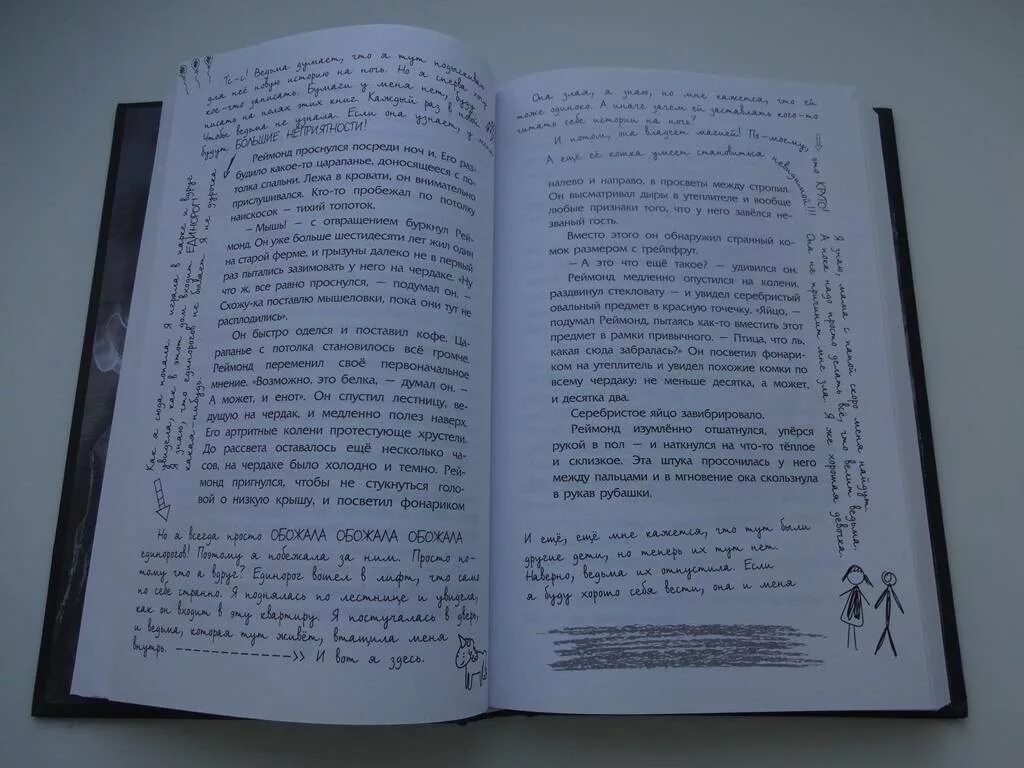 Тс-с! Ведьма думает, что я тут подыскиваю
для неё новую историю на ночь. Но я сперва хочу
кое-что записать. Бумаги у меня нет, буду
писать на полях этих книг. Каждый раз в новой
Чтобы ведьма не узнала. Если она узнает, у меня
будут БОЛЬШИЕ НЕПРИЯТНОСТИ!
Реймонд проснулся посреди ночи. Его раз-
будило какое-то царапанье, доносящееся с по-
толка спальни. Лежа в кровати, он внимательно
прислушивался. Кто-то пробежал по потолку
наискосок — тихий топоток.
— Мышь! — с отвращением буркнул Рей-
монд. Он уже больше шестидесяти лет жил один
на старой ферме, и грызуны далеко не в первый
раз пытались зазимовать у него на чердаке. «Ну
что ж, все равно проснулся, — подумал он. —
Схожу-ка поставлю мышеловки, пока они тут не
расплодились».
Он быстро оделся и поставил кофе. Ца-
рапанье с потолка становилось всё громче.
Реймонд переменил своё первоначальное
мнение. «Возможно, это белка, — думал он. —
А может, и енот». Он спустил лестницу, ве-
дущую на чердак, и медленно полез наверх.
Его артритные колени протестующе хрустели.
До рассвета оставалось ещё несколько ча-
сов, на чердаке было холодно и темно. Рей-
монд пригнулся, чтобы не стукнуться голо-
вой о низкую крышу, и посветил фонариком
Как я сюда попала. Я играла в парке и вдруг
увидела, как в этот дом входит ЕДИНОРОГ!
Я знаю, что единорогов не бывает. Я не дурочка
какая-нибудь.
Но я всегда просто ОБОЖАЛА ОБОЖАЛА ОБОЖАЛА
единорогов! Поэтому я побежала за ним. Просто по-
тому что а вдруг? Единорог вошел в лифт, что само
по себе странно. Я поднялась по лестнице и увидела,
как он входит в эту квартиру. Я постучалась в дверь,
и ведьма, которая тут живёт, втащила меня
внутрь. И вот я здесь.
Она злая, я знаю, но мне кажется, что ей
тоже одиноко. А иначе зачем ей заставлять кого-то
читать себе истории на ночь?
И потом, она владеет магией! По-моему, это КРУТО!
А ещё её кошка умеет становиться невидимой!!!
налево и направо, в просветы между стропил.
Он высматривал дыры в утеплителе и вообще
любые признаки того, что у него завёлся не-
званый гость.
Вместо этого он обнаружил странный ко-
мок размером с грейпфрут.
— А это что ещё такое? — удивился он.
Реймонд медленно опустился на колени,
раздвинул стекловату — и увидел серебристый
овальный предмет в красную точечку. «Яйцо, —
подумал Реймонд, пытаясь как-то вместить этот
предмет в рамки привычного. — Птица, что ль,
какая сюда забралась?» Он посветил фонари-
ком на утеплитель и увидел похожие комки по
всему чердаку: не меньше десятка, а может,
и десятка два.
Серебристое яйцо завибрировало.
Реймонд изумлённо отшатнулся, упёрся
рукой в пол — и наткнулся на что-то тёплое
и склизкое. Эта штука просочилась у него
между пальцами и в мгновение ока скользнула
в рукав рубашки.
Я знаю, мама с папой скоро меня найдут.
А пока надо просто делать всё, что велит ведьма.
Она не причинит мне зла. Я же хорошая девочка.
И ещё, ещё мне кажется, что тут были
другие дети, но теперь их тут нет.
Наверно, ведьма их отпустила. Если
я буду хорошо себя вести, она и меня